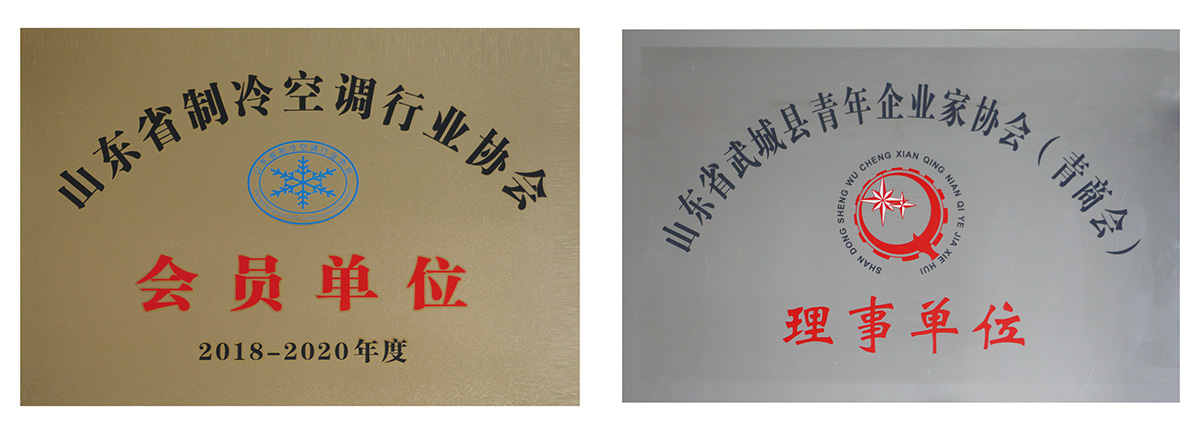 山东省制冷空调行业协会
山东省制冷空调行业协会
会员单位
2018-2020年度
山东省武城县青年企业家协会（青商会）
SHAN DONG SHENG WU CHENG XIAN QING NIAN QI YE JIA XIE HUI
理事单位